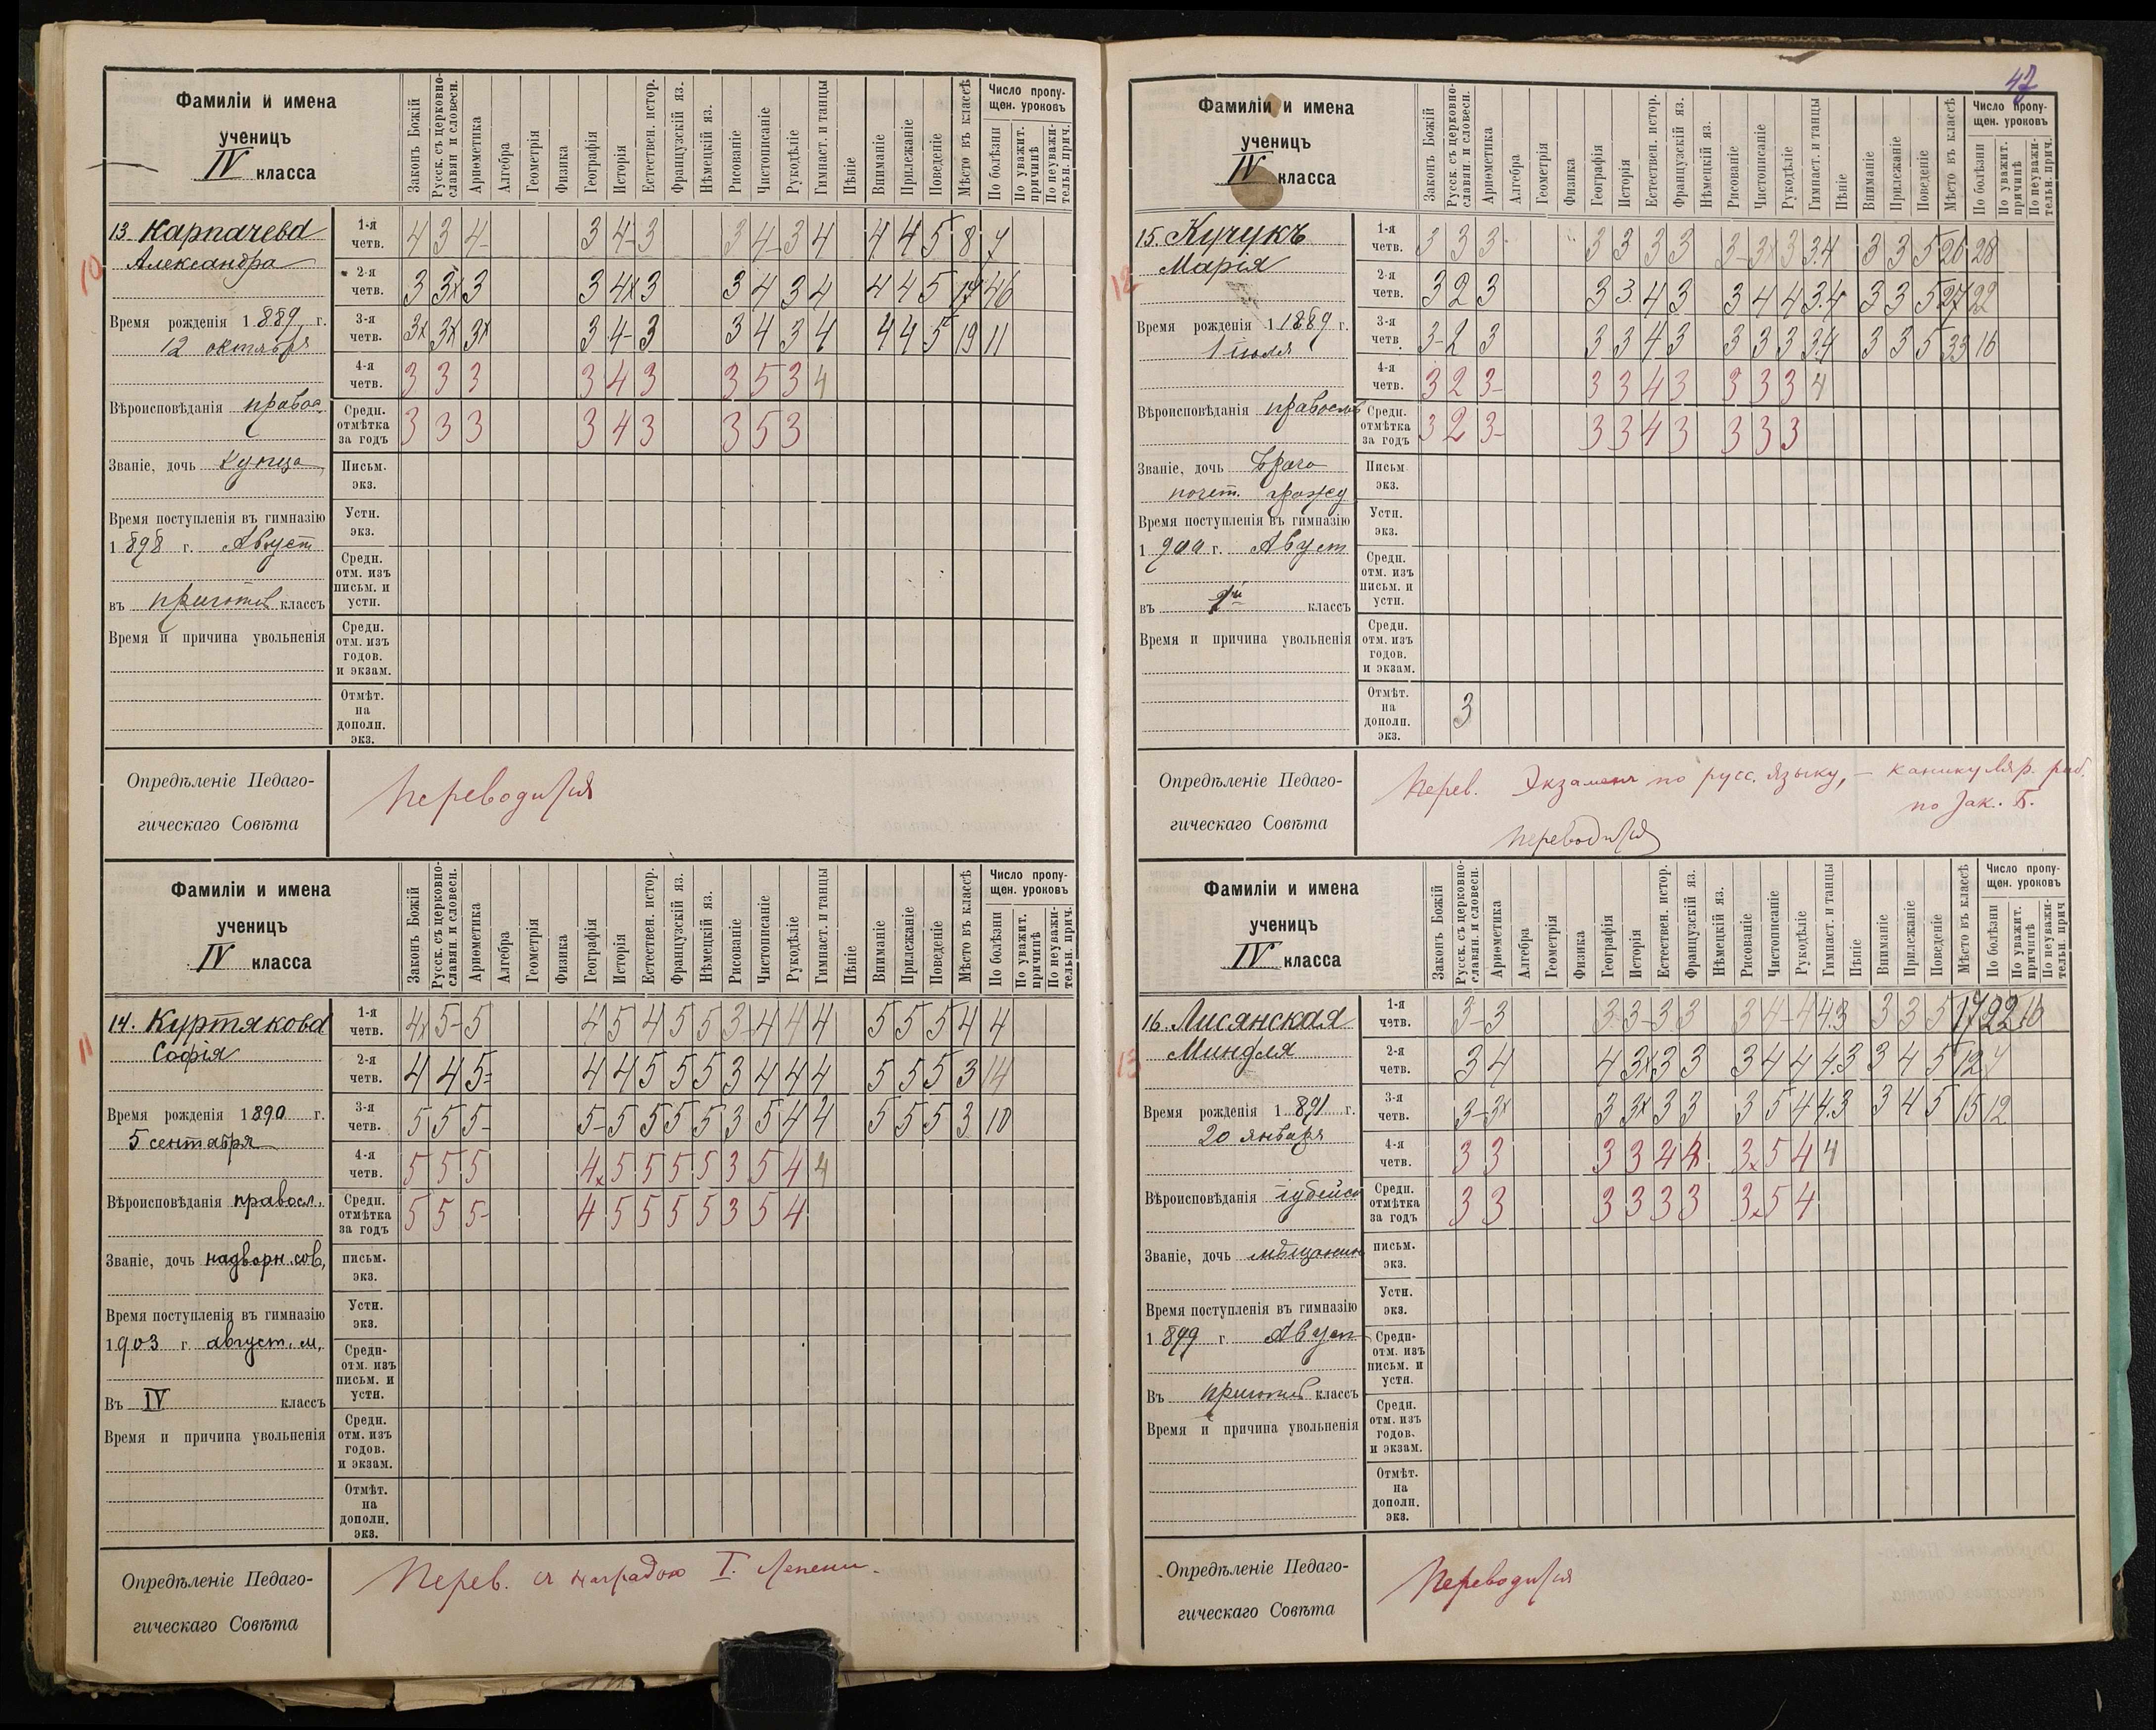 Фамиліи и имена
ученицъ
IV класса
Законъ Божій
Русск. съ церковно-
славян и словесн.
Ариѳметика
Алгебра
Геометрія
Физика
Географія
Исторія
Естествен. истор.
Французскій яз.
Нѣмецкій яз.
Рисованіе
Чистописаніе
Рукодѣліе
Гимнаст. и танцы
Пѣніе
Вниманіе
Прилежаніе
Поведеніе
Мѣсто въ классѣ
Число пропу-
щен. уроковъ
По болѣзни
По уважит.
причинѣ
По неуважи-
тельн. прич.
10
13 Карпачева
Александра
Время рожденія 1889 г.
12 октября
Вѣроисповѣданія правос.
Званіе, дочь купца
Время поступленія въ гимназію
1898 г. Август
въ приготов классъ
Время и причина увольненія
1-я четв. 4 3 4- 3 4- 3 3 4- 3 4 4 4 5 8 7
2-я четв. 3 3х 3 3 4х 3 3 4 3 4 4 4 5 17 46
3-я четв. 3х 3х 3х 3 4- 3 3 4 3 4 4 4 5 19 11
4-я четв. 3 3 3 3 4 3 3 5 3 4
Средн. отмѣтка за годъ 3 3 3 3 4 3 3 5 3
Письм.
экз.
Устн.
экз.
Средн.
отм. изъ
письм. и
устн.
Средн.
отм. изъ
годов.
и экзам.
Отмѣт.
на
дополн.
экз.
Опредѣленіе Педаго-
гическаго Совѣта
Переводится
Фамиліи и имена
ученицъ
IV класса
Законъ Божій
Русск. съ церковно-
славян. и словесн.
Ариѳметика
Алгебра
Геометрія
Физика
Географія
Исторія
Естествен. истор.
Французскій яз.
Нѣмецкій яз.
Рисованіе
Чистописаніе
Рукодѣліе
Гимнаст. и танцы
Пѣніе
Вниманіе
Прилежаніе
Поведеніе
Мѣсто въ классѣ
Число пропу-
щен. уроковъ
По болѣзни
По уважит.
причинѣ
По неуважи-
тельн. прич.
11
14. Куртякова
Софія
Время рожденія 1890 г.
5 сентября
Вѣроисповѣданія правосл.
Званіе, дочь надворн. сов,
Время поступленія въ гимназію
1903 г август. м,
Въ IV классъ
Время и причина увольненія
1-я четв. 4х 5- 5 4 5 4 5 5 3- 4 4 4 5 5 5 4 4
2-я четв. 4 4 5= 4 4 5 5 5 3 4 4 4 5 5 5 3 14
3-я четв. 5 5 5- 5- 5 5 5 5 3 5 4 4 5 5 5 3 10
4-я четв. 5 5 5 4х 5 5 5 5 3 5 4 4
Средн. отмѣтка за годъ 5 5 5- 4 5 5 5 5 3 5 4
письм.
экз.
Устн.
экз.
Средн-
отм. изъ
письм. и
устн.
Средн.
отм. изъ
годов.
и экзам.
Отмѣт.
на
дополн.
экз.
Опредѣленіе Педаго-
гическаго Совѣта
Перев. съ наградою I. степени.
47
Фамиліи и имена
ученицъ
IV класса
Законъ Божій
Русск. съ церковно-
славян. и словесн.
Ариѳметика
Алгебра
Геометрія
Физика
Географія
Исторія
Естествен. истор.
Французскій яз.
Нѣмецкій яз.
Рисованіе
Чистописаніе
Рукодѣліе
Гимнаст. и танцы
Пѣніе
Вниманіе
Прилежаніе
Поведеніе
Мѣсто въ классѣ
Число пропу-
щен. уроковъ
По болѣзни
По уважит.
причинѣ
По неуважи-
тельн. прич.
12
15. Кучукъ
Марія
Время рожденія 1 1889 г.
1 июля
Вѣроисповѣданія правослв
Званіе, дочь
почет. гражд
Время поступленія въ гимназію
1 900 г. Август
въ классъ
Время и причина увольненія
1-я четв. 3 3 3 3 3 3 3 3- 3х 3 3.4 3 3 5 26 28
2-я четв. 3 2 3 3 3. 4 3 3 4 4 3.4 3 3 5 27 22
3-я четв. 3- 2 3 3 3 4 3 3 3 3 3.4 3 3 5 33 16
4-я четв. 3 2 3- 3 3 4 3 3 3 3 4
Средн. отмѣтка за годъ 3 2 3- 3 3 4 3 3 3 3
Письм
экз.
Устн.
экз.
Средн.
отм. изъ
письм. и
устн.
Средн.
отм. изъ
годов.
и экзам.
Отмѣт. на дополн. экз. 3
Опредѣленіе Педаго-
гическаго Совѣта
Перев. Экзамен по русс. языку, – каникуляр. раб.
по Зак. Б.
переводится
Фамиліи и имена
ученицъ
IV класса
Законъ Божій
Русск. съ церковно-
славян. и словесн.
Ариѳметика
Алгебра
Геометрія
Физика
Географія
Исторія
Естествен. истор.
Французскій яз.
Нѣмецкій яз.
Рисованіе
Чистописаніе
Рукодѣліе
Гимнаст. и танцы
Пѣніе
Вниманіе
Прилежаніе
Поведеніе
Мѣсто въ классѣ
Число пропу-
щен. уроковъ
По болѣзни
По уважит.
причинѣ
По неуважи-
тельн. прич
13
16. Лисянская
Миндля
Время рожденія 1891 г.
20 января
Вѣроисповѣданія іудейск
Званіе, дочь мѣщанина
Время поступленія въ гимназію
1899 г Август
Въ приготов классъ
Время и причина увольненія
1-я четв. 3- 3 3 3- 3 3 3 4- 4 4.3 3 3 5 17 22 16
2-я четв. 3 4 4 3х 3 3 3 4 4 4.3 3 4 5 12 7
3-я четв. 3- 3х 3 3х 3 3 3 5 4 4.3 3 4 5 15 12
4-я четв. 3 3 3 3 4 3х 5 4 4
Средн. отмѣтка за годъ 3 3 3 3 3 3 3х 5 4
письм.
экз.
Устн.
экз.
Средн-
отм. изъ
письм. и
устн.
Средн.
отм. изъ
годов.
и экзам.
Отмѣт.
на
дополн.
экз.
Опредѣленіе Педаго-
гическаго Совѣта
Переводится